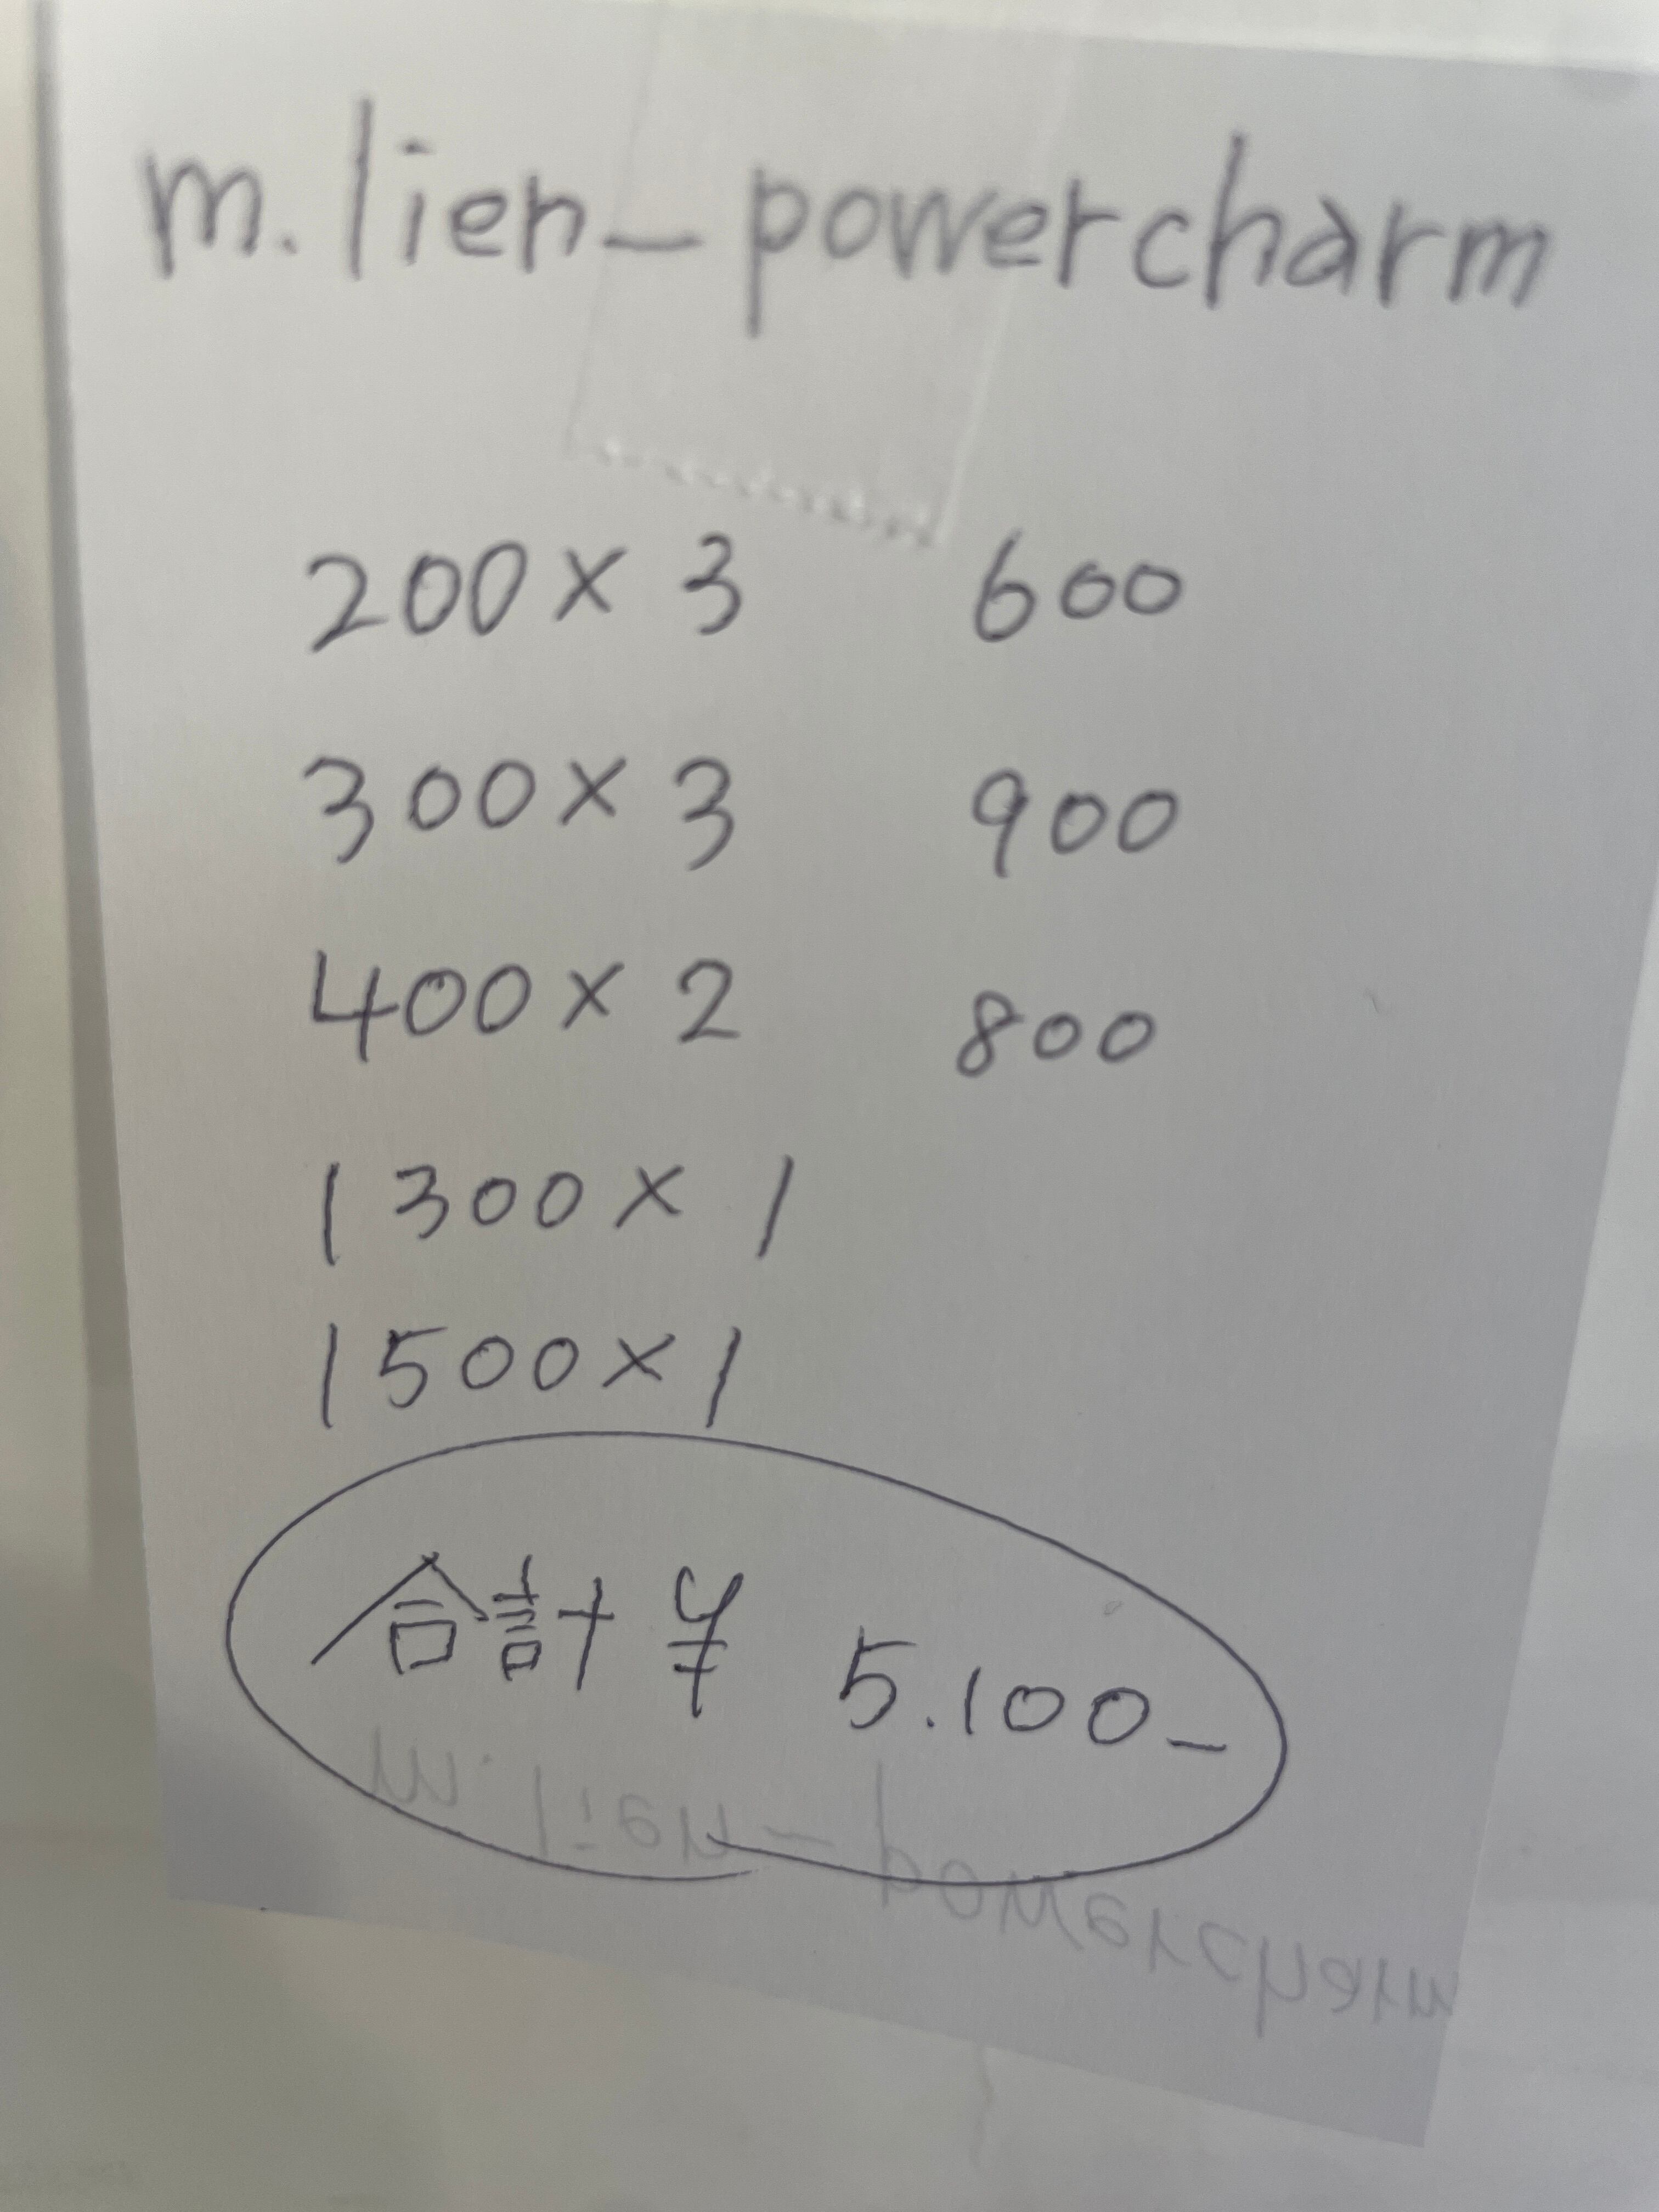 m.lien_powercharm
200 × 3 600
300 × 3 900
400 × 2 800
1300 × 1
1500 × 1
合計 ¥ 5.100-
m.lien-powercharm